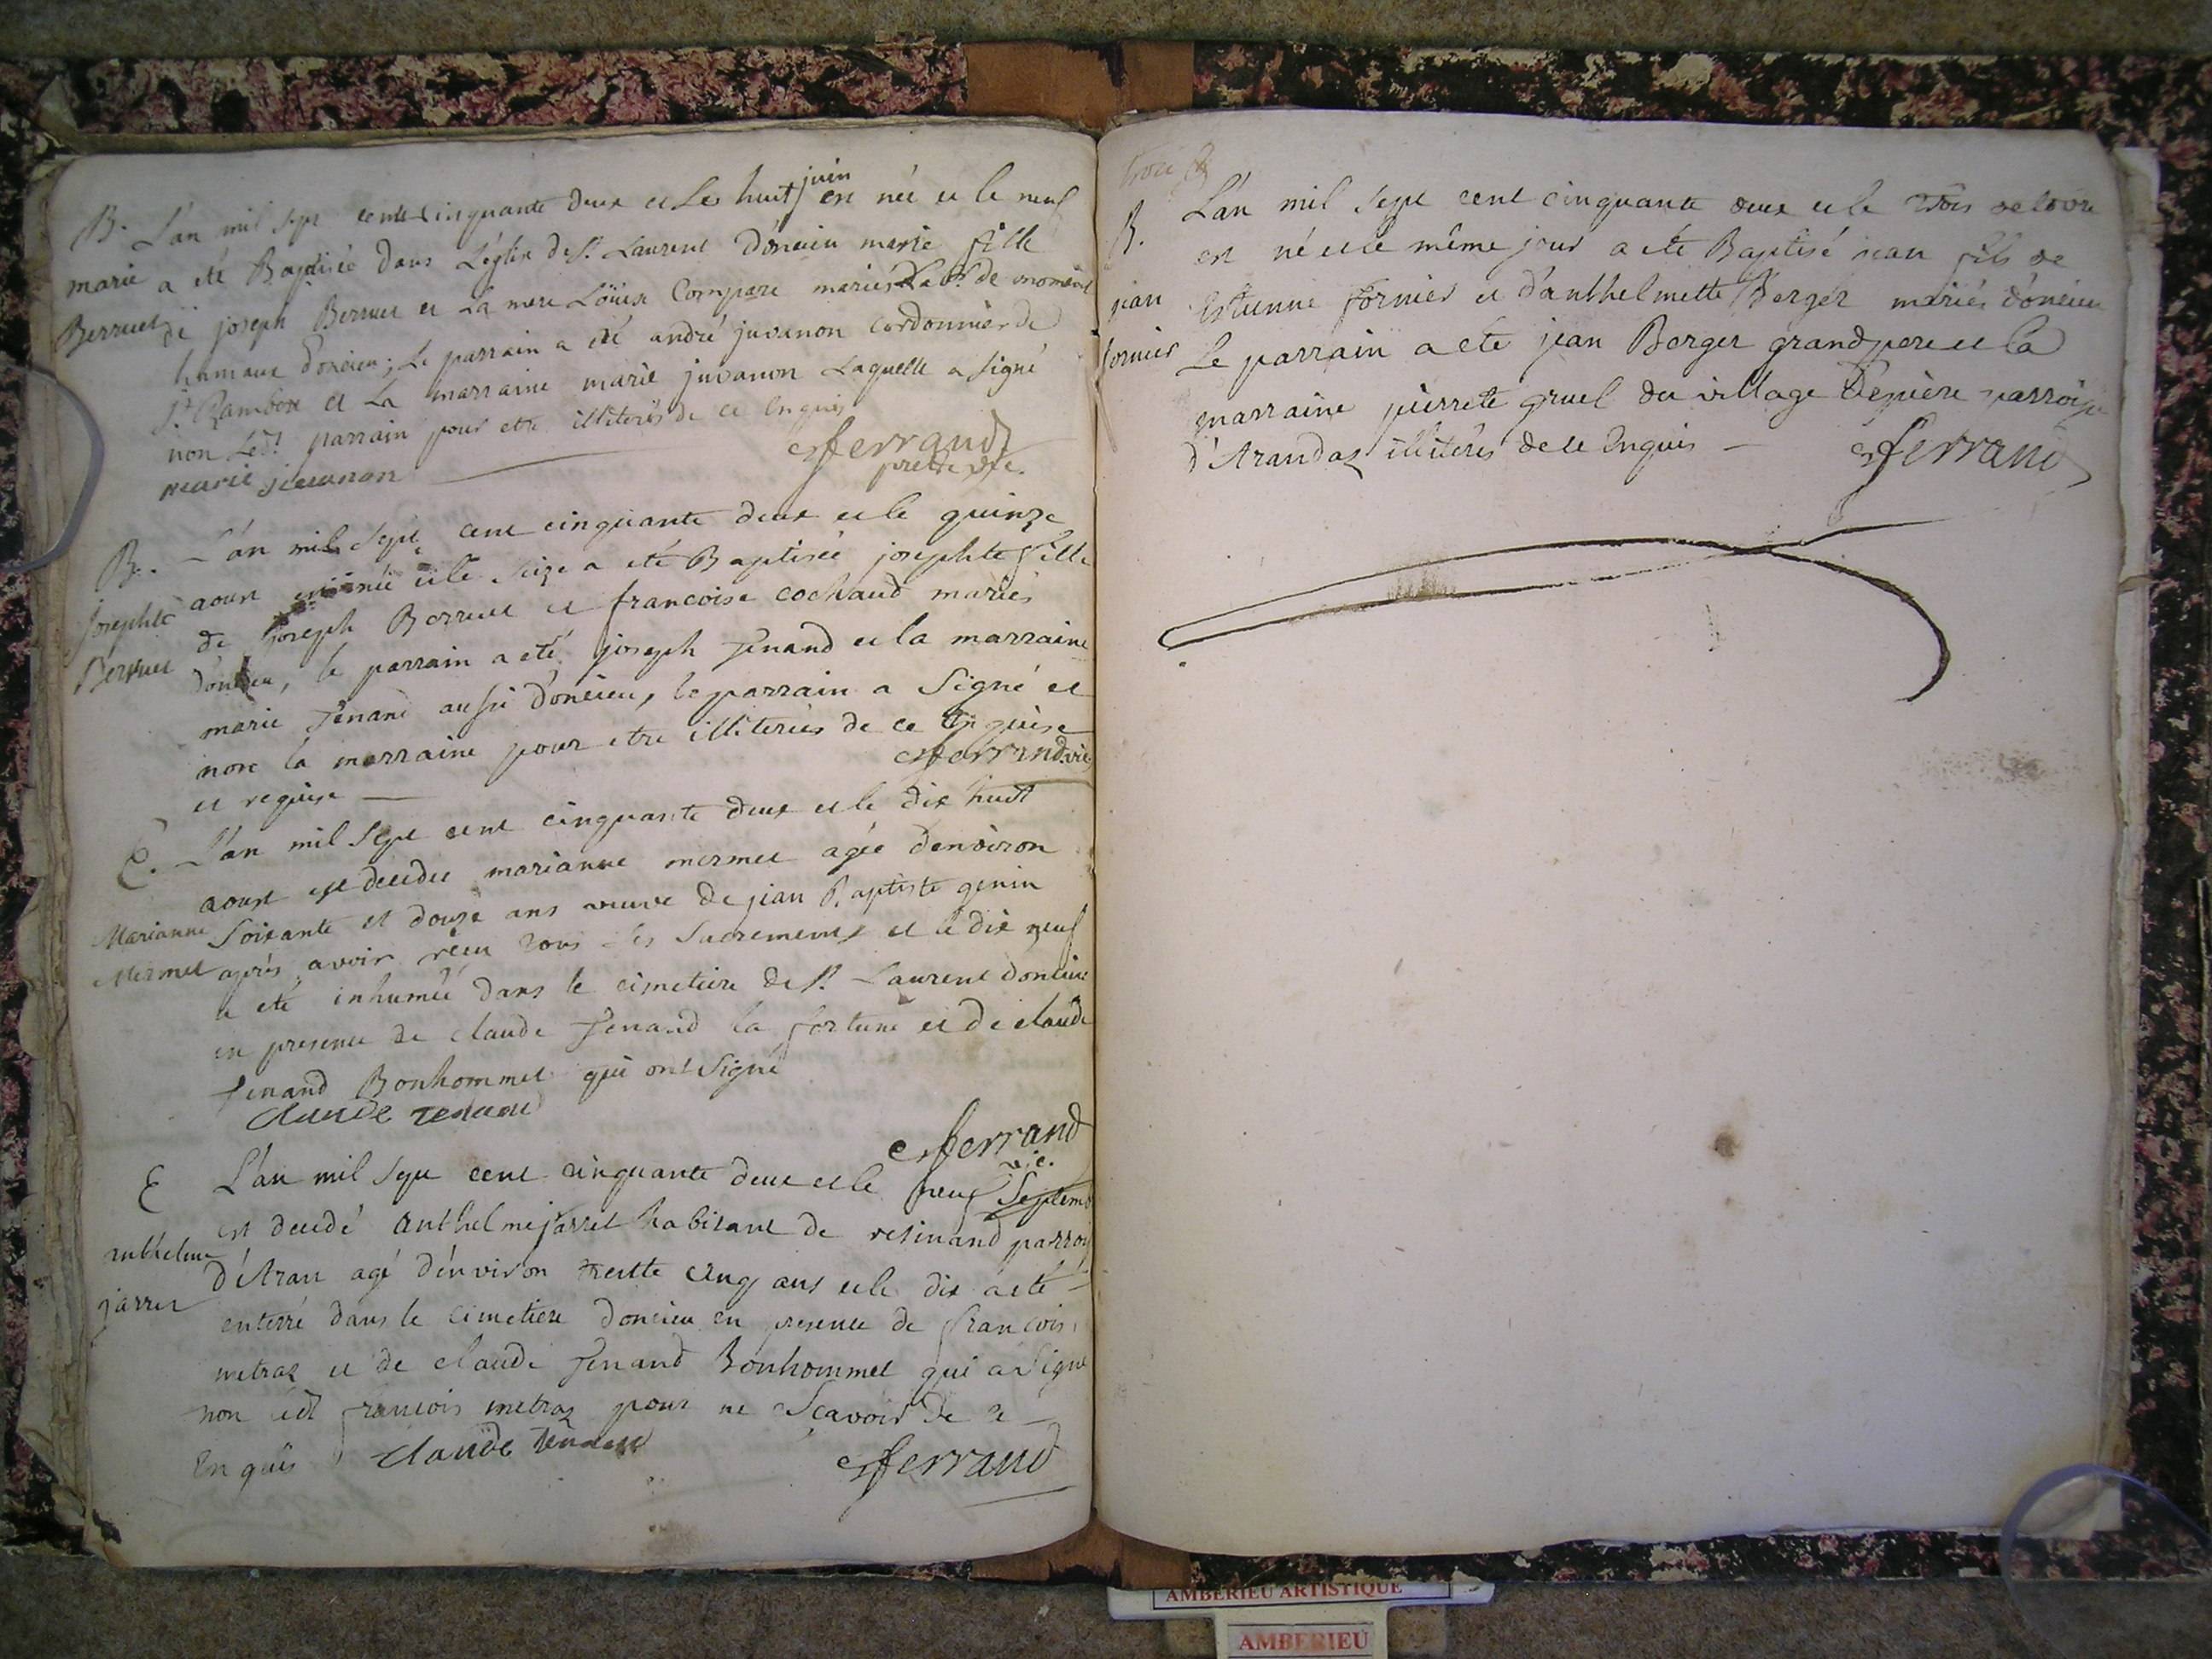 B. L'an mil sept cent cinquante deux et Le huit juin est née et le neuf
marie a eté Baptisée dans L'églisse de St. Laurent d'oncieu marie fille
Berruet de joseph Berruet et La mere Loüise Compare mariés
d'oncieu; Le parrain a eté andré juvanon cordonnier de
St. Rambert et La marraine marie juvanon Laquelle a signé
non Ledt. parrain pour etre illiterés de ce Enquis
marie juvanon
fferrand
pretre vic.
B. L'an mil sept cent cinquante deux et le quinze
aoust est née et le seize a eté Baptisée josephte fille
josephte
de joseph Berruet et francoise cochaud mariés
Berruet
d'oncieu, le parrain a eté joseph Tenand et la marraine
marie Tenand aussi d'oncieu, le parrain a signé et
non la marraine pour etre illiterées de ce Enquise
et requise
fferrand vic
E. L'an mil sept cent cinquante deux et le dix huit
aoust est decedée marianne mermet agée d'environ
Marianne soixante et douze ans veuve de jean Baptiste genin
Mermet après avoir réçu tous les sacrements et le dix neuf
a eté inhumée dans le cimetiere de St. Laurent d'oncieu
en presence de claude Tenand la fortune et de claude
Tenand Bonhommet qui ont signé
claude tenand
fferrand
vic.
E L'an mil sept cent cinquante deux et le neuf septemb
est decedé anthelme jarret habitant de resinand parroi
anthelme
d'Aran agé d'environ trentte cinq ans et le dix a eté
jarret
enterré dans le cimetiere d'oncieu en presence de francois
metraz et de claude Tenand Bonhommet qui a signé
non ledt francois metraz pour ne sçavoir de ce
Enquis claude tenand
fferrand
B. L'an mil sept cent cinquante deux et le trois octobre
est né et le même jour a eté Baptisé jean fils de
jean Estienne fornier et d'anthelmette Berger mariés d'oncieu
fornier Le parrain a eté jean Berger grand pere et la
marraine pierrete gruel du village parroisse
d'Arandaz illiterés de ce Enquis
fferrand
AMBERIEU ARTISTIQUE
AMBERIEU